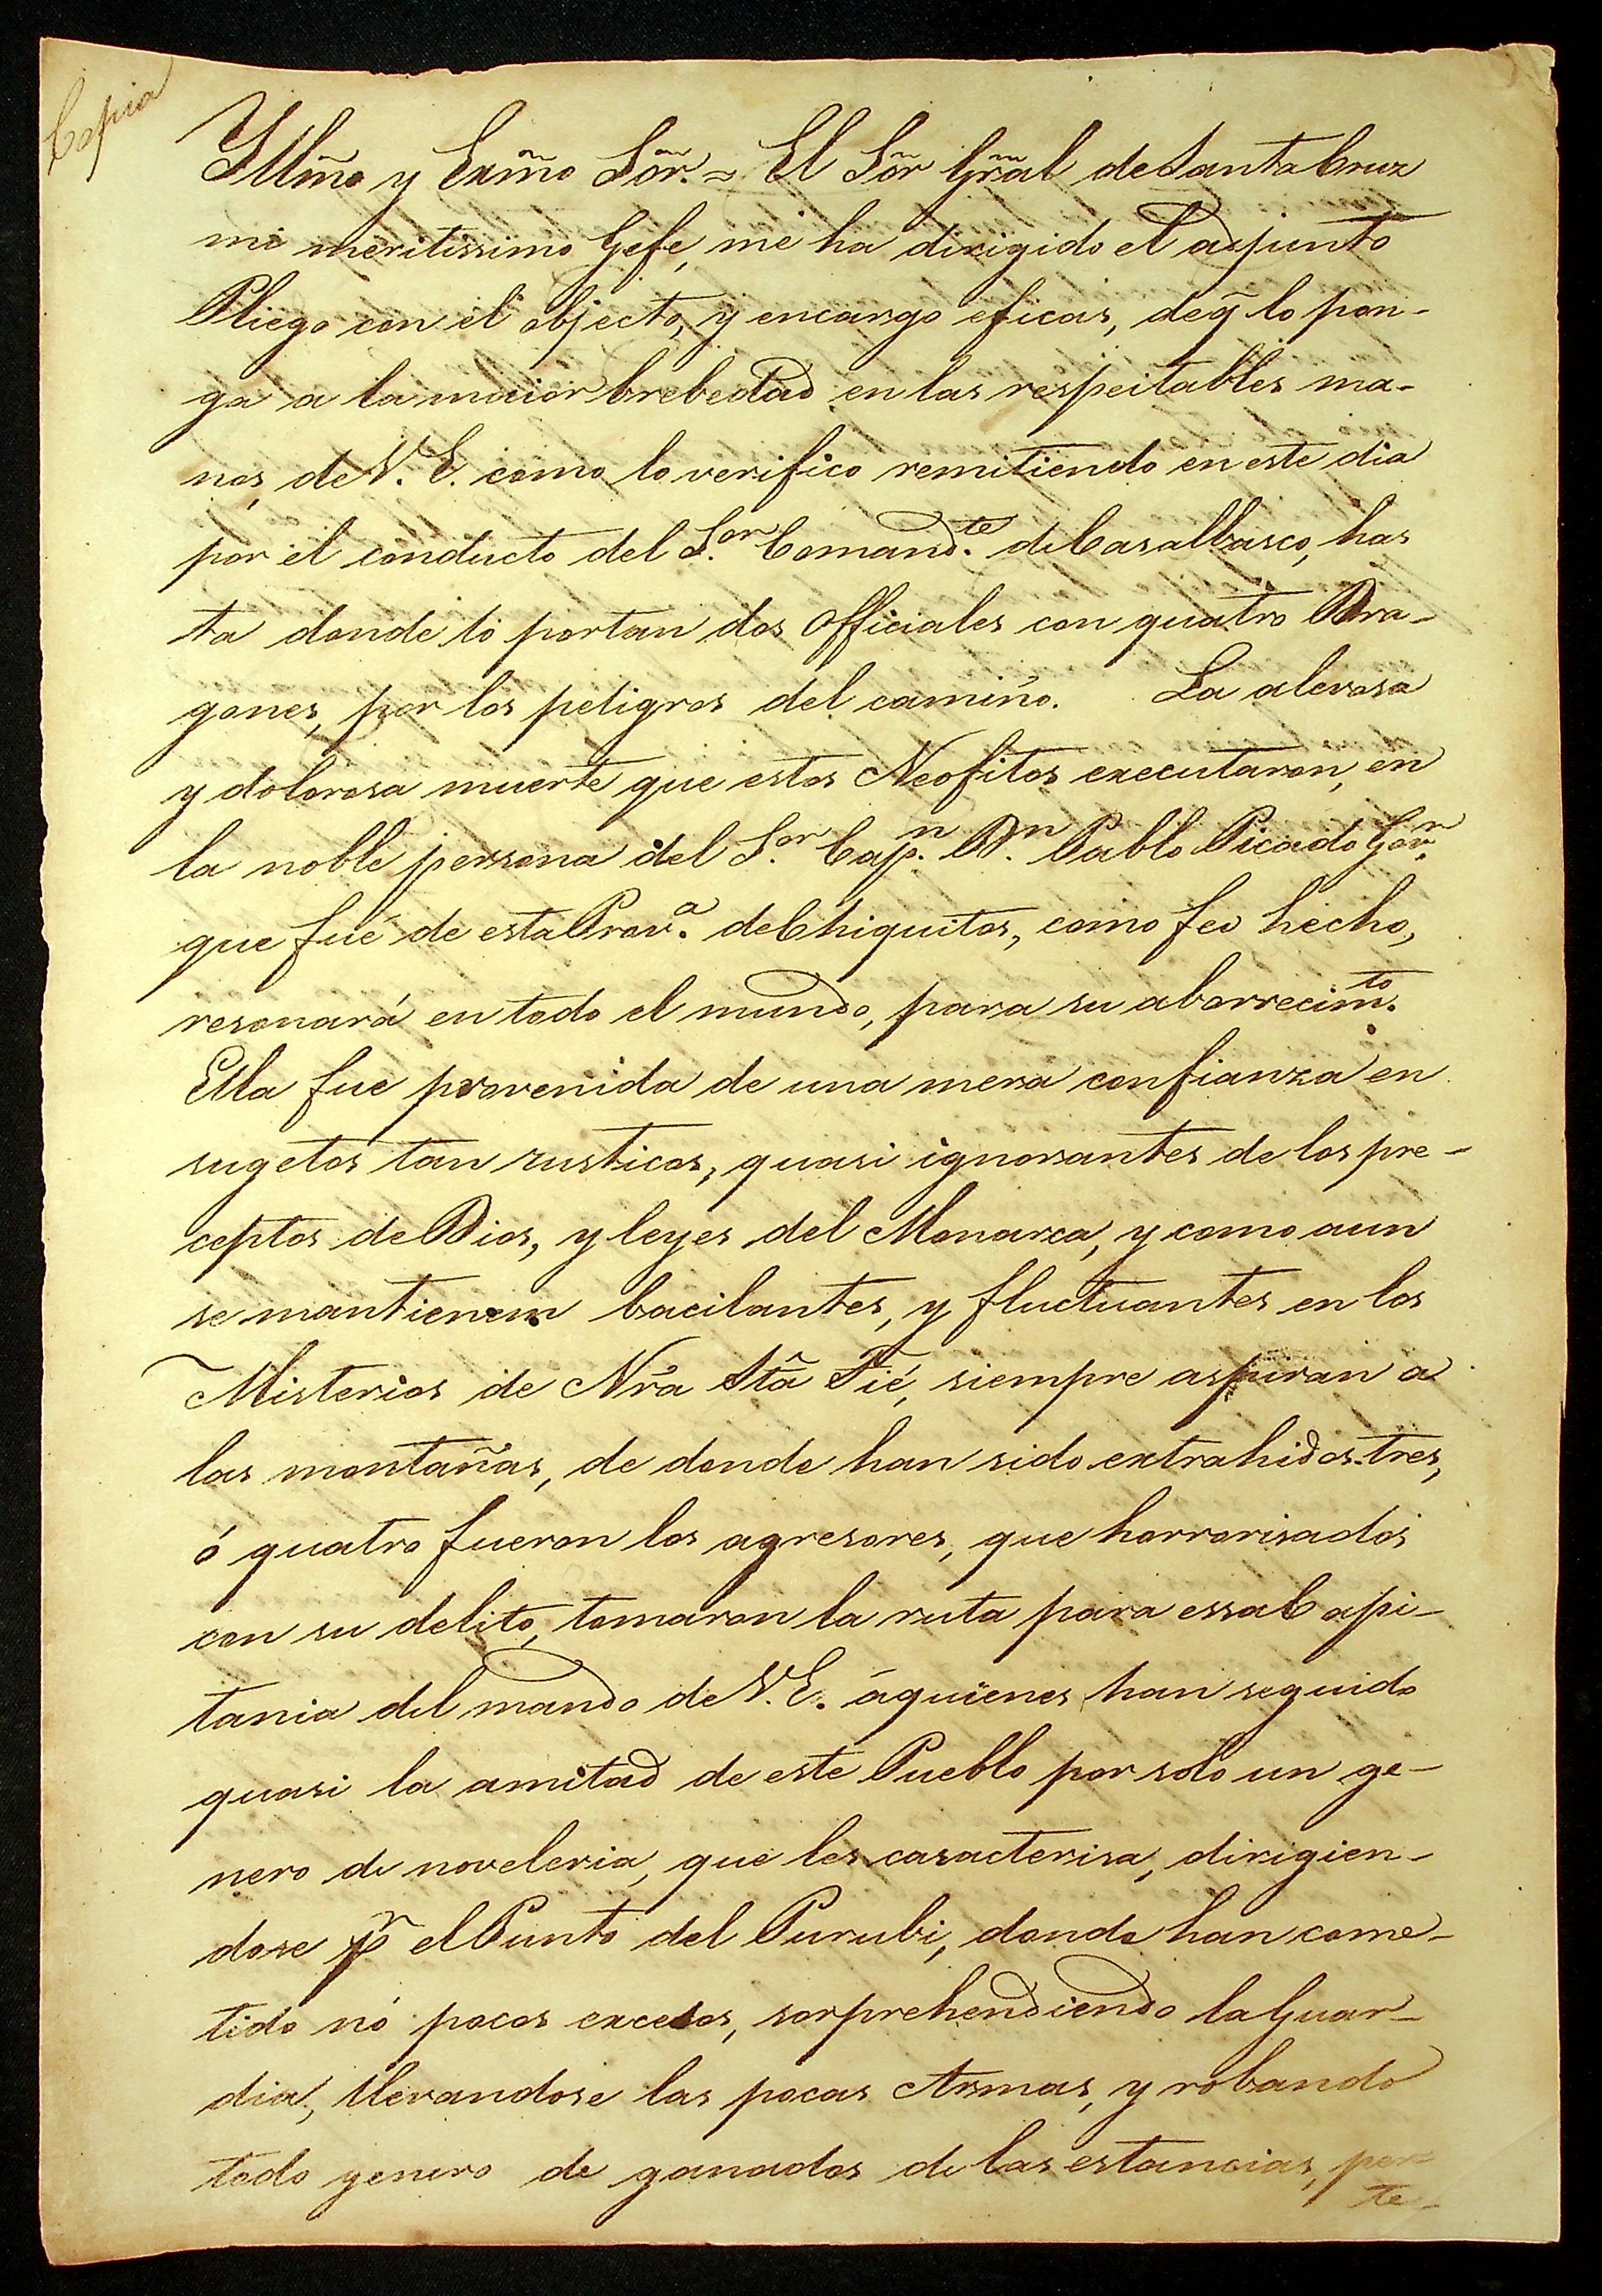 Copia
Yllm̃o y Exm̃o Sõr. = El Sõr Gr̃al de Santa Cruz
mi meritissimo Gefe, me ha dirigido el adjunto
Pliego con el objecto, y encargo eficás, de q̃ lo pon-
ga a la maior brebedad en las respeitables ma-
nos, de V. E. como lo verifico remitiendo en este dia
por el conducto del S.or Comand.te de Casalbasco, has
ta donde lo portan dos Officiales con quatro Dra-
gones, por los peligros del camiño. La alevosa
y dolorosa muerte que estos Neofitos executaron, en
la noble persona del S.or Cap.n D.n Pablo Picado Gov.r
que fué de esta Prov.a de Chiquitos, como feo hecho,
resonará en todo el mundo, para su aborrecim.to
Ella fue provenida de una mera confianza en
sugetos tan rusticos, quasi ignorantes de los pre-
ceptos de Dios, y leyes del Monarca, y como aun
se mantienem bacilantes, y fluctuantes en los
Misterios de Nr̃a Stã Fié, siempre aspiran a
las montañas, de donde han sido extrahidos. tres,
ó quatro fueron los agresores, que horrorisados
con su delito, tomaron la ruta para essa Capi-
tania del mando de V. E. áquienes han seguido
quasi la amitad de este Pueblo por solo un ge-
nero de noveleria, que les caracterisa, dirigien-
dose p.r el Punto del Purubi, donde han come-
tido nó pocos excesos, sorprehendiendo la Guar-
dia, llevandose las pocas Armas, y robando
todo genero de ganados de las estancias, per
te-